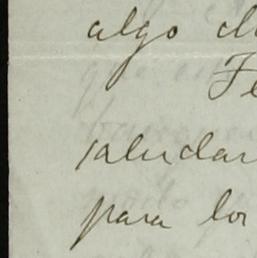 algo d
Fe
saludar
para los